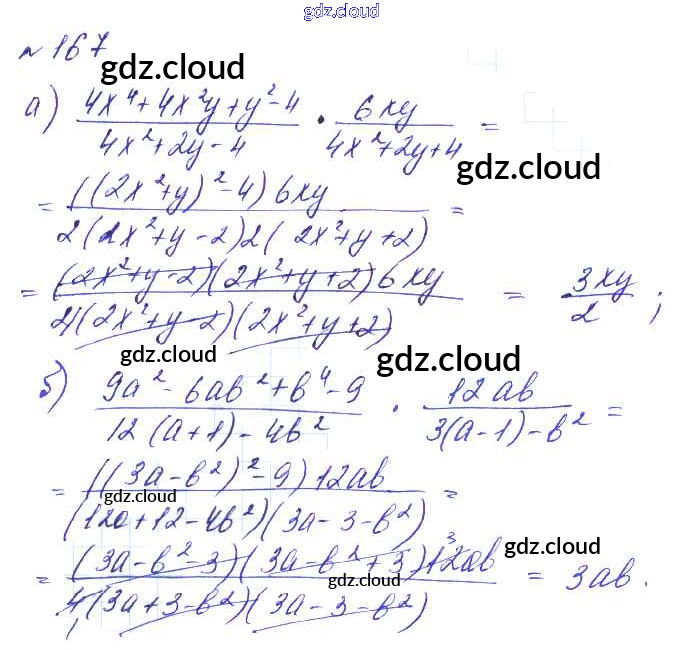 gdz.cloud
№ 167
gdz.cloud
а) (4x⁴+4x²y+y²-4)/(4x²+2y-4) · 6xy/(4x²+2y+4) =
gdz.cloud
= ((2x²+y)²-4)6xy / 2(2x²+y-2)2(2x²+y+2) =
= (2x²+y-2)(2x²+y+2)6xy / 4(2x²+y-2)(2x²+y+2) = 3xy/2 ;
gdz.cloud
б) (9a²-6ab²+b⁴-9)/(12(a+1)-4b²) · 12ab/(3(a-1)-b²) =
gdz.cloud
= ((3a-b²)²-9)12ab / (12a+12-4b²)(3a-3-b²) =
gdz.cloud
gdz.cloud
= (3a-b²-3)(3a-b²+3)12ab 3 / 4(3a+3-b²)(3a-3-b²) = 3ab.
gdz.cloud
1